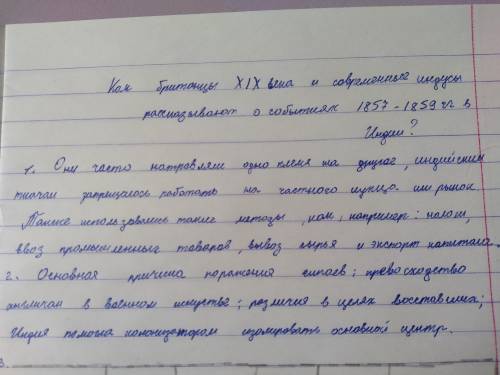 Как британцы XIX века и современные индусы
рассказывают о событиях 1857-1859 гг в
Индии?
1. Они часто натравляли одно племя на другое, индийским
ткачам запрещалось работать на частного купца или рынок.
Также использовались такие методы, как, например: налог,
ввоз промышленных товаров, вывоз сырья и экспорт капитала.
2. Основная причина поражения сипаев: превосходство
англичан в военном искустве; различия в целях восставших;
Индия помогла колонизаторам изолировать основной центр.
3.